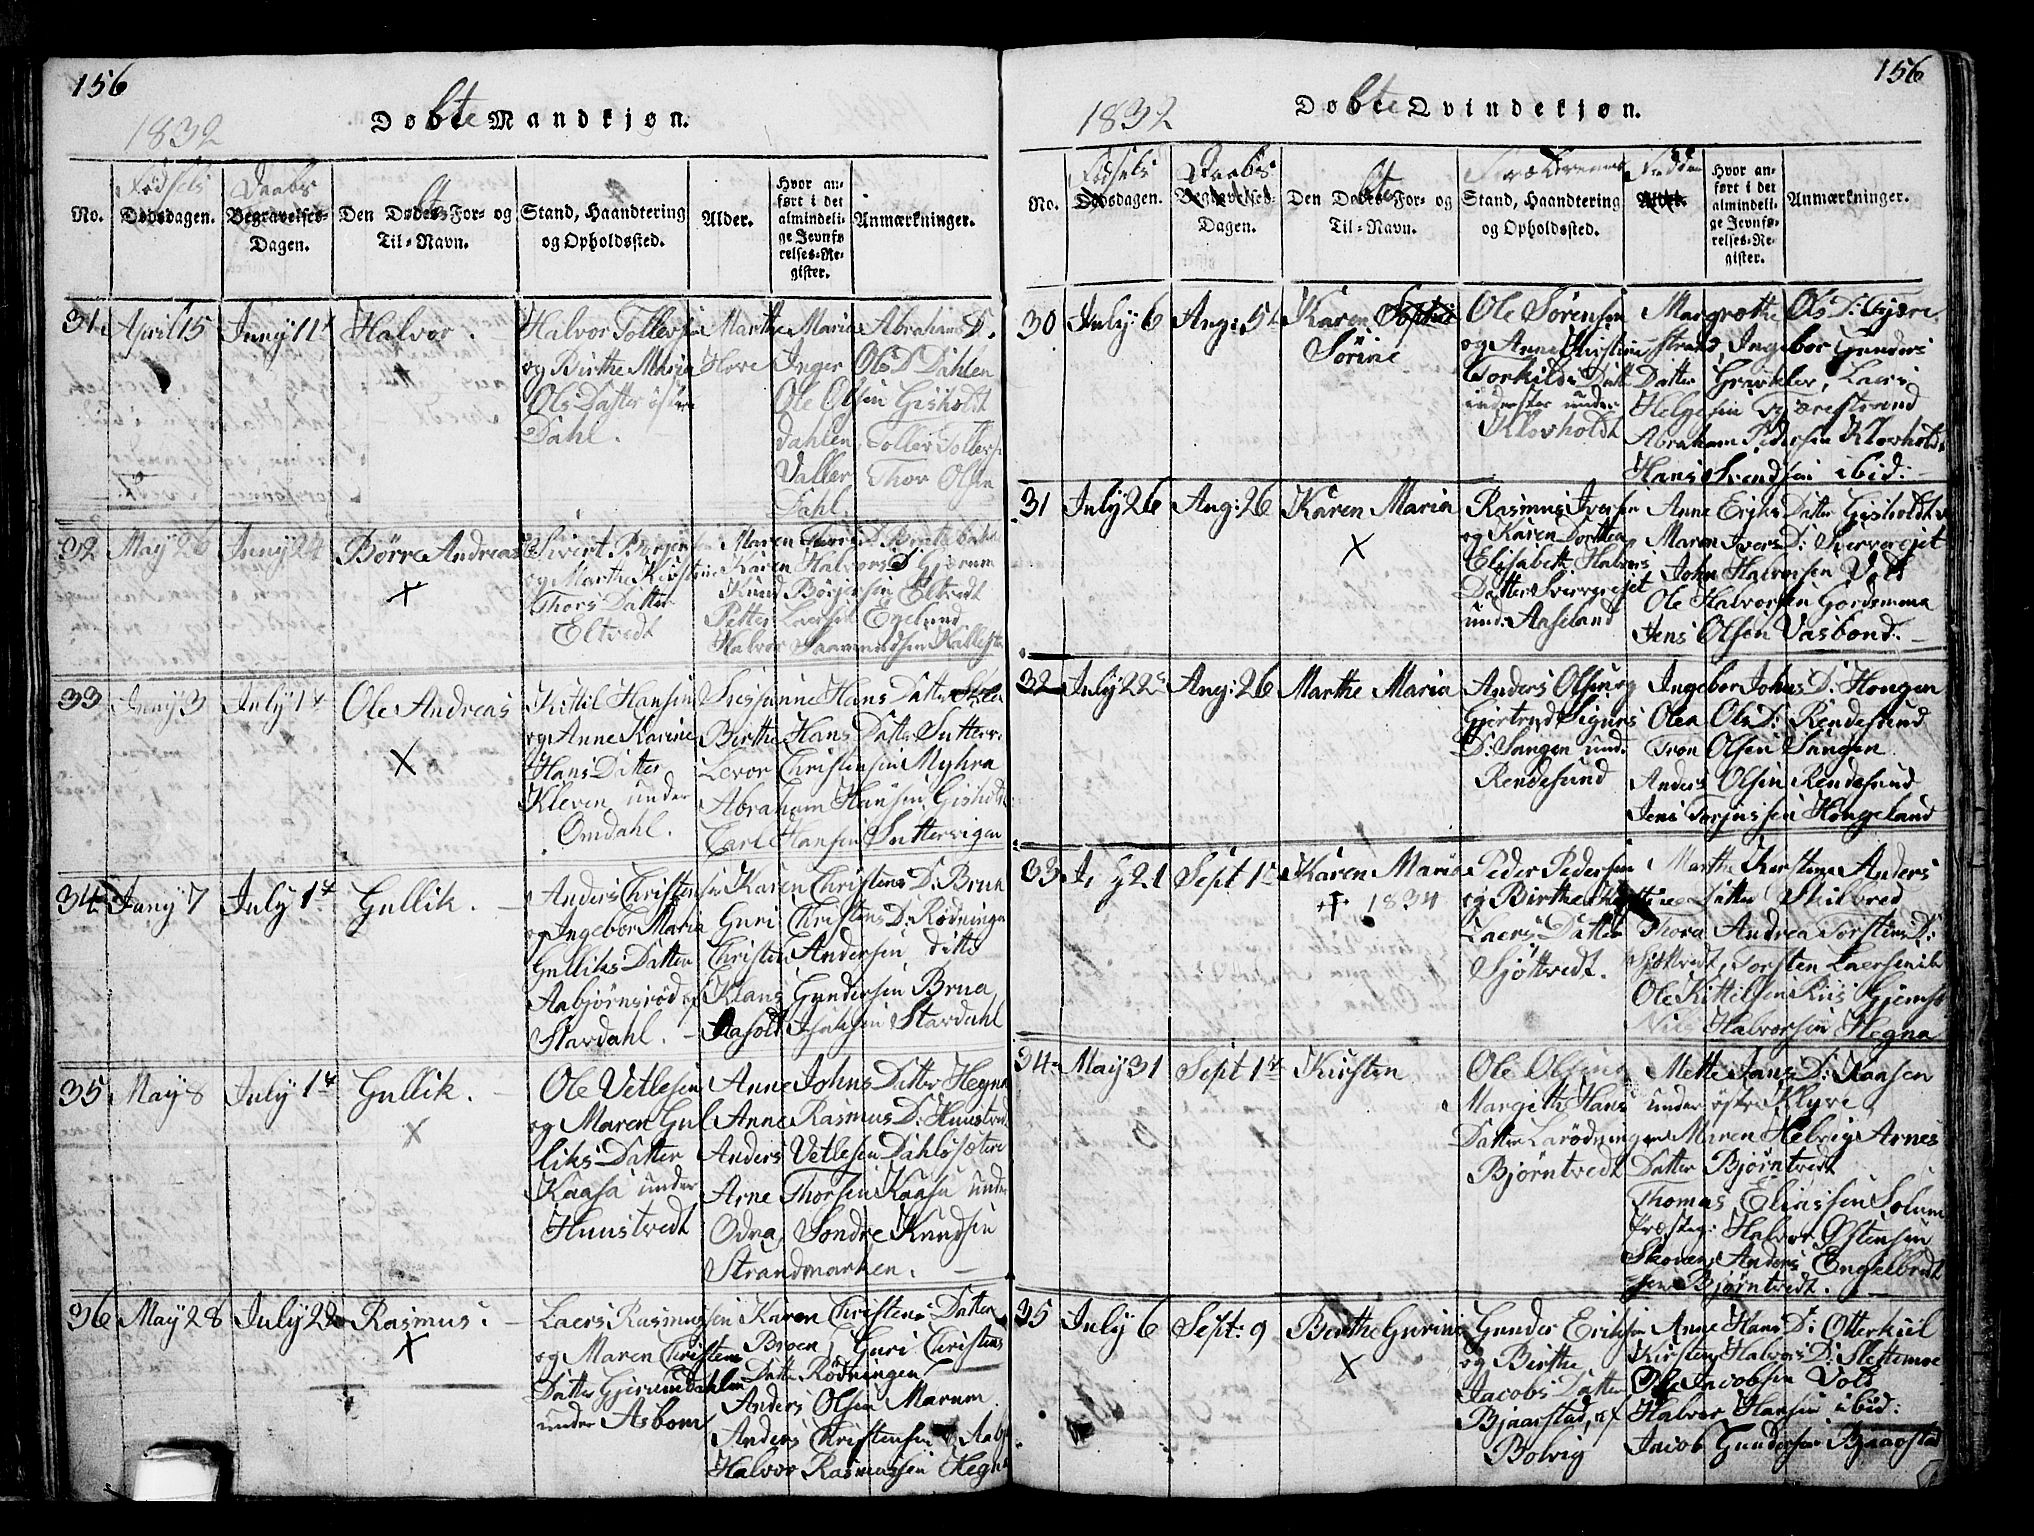 156
1832
Døbte Mandkjøn.
No.
Fødsels
Dødsdagen.
Daabs
Begravelses-
Dagen.
Den Døbtes For- og
Til-Navn.
Stand, Haandtering
og Opholdssted.
Alder.
Hvor an-
ført i det
almindeli-
ge Jevnfø-
relses-Re-
gister.
Anmærkninger.
31 April 15 Juny 11t Halvor.
Halvor Tollefsen
og Birthe Maria
Ols Datter østre
Dahl.
Marthe Maria Abrahams D.
Hove Inger Ols D Dahlen
Ole Olsen Gisholdt
dahlen Tollef Tollefs
Valler Thor Olsen
Dahl.
32 May 26 Juny 24 Børre Andreas
X
Sivert Børgesen
og Marthe Kirstine
Thors Datter
Eltvedt
Maren Thors D. Brattebakke
Karen Halvors D Gjerum
Knud Børgesen Eltvedt
Petter Laersen Egelund
Halvor Saamundsen Kallesta
33 Juny 3 July 1t Ole Andreas
X
Kittil Hansen
og Anne Karine
Hans Datter
Kleven under
Omdahl.
Susanne Hans Datter
Birthe Hans Datter Sutterv
Levor Christensen Myhra
Abraham Hansen Gisholdt
Carl Hansen Suttervigen
34 Juny 7 July 1t Gullik.
Anders Christensen
og Ingebor Maria
Gulliks Datter
Aabjørnsrød af
Stavdahl.
Karen Christens D. Brua
Guri Christens D. Rødningen
Christen Andersen ditto
Klaus Gundersen Brua
Aasold Isaksen Stavdahl
35 May 8 July 1t Gullik.
X
Ole Vetlesen
og Maren Gul
liks Datter
Kaasa under
Hunstvedt
Anne Johns Datter Hegna
Anne Rasmus D: Hunstved
Anders Vetlesen Dahlssætere
Arne Thorsen Kaasa under
Odna Sondre Knudsen
Strandmarken.
36 May 28 July 22 Rasmus.
X
Laers Rasmussen
og Maren Christens
Datter Gjerumdahlen
under Asbom
Karen Christens Datter
Broen, Guri Christens
Datter Rødningen
Anders Olsen Marum
Anders Christensen Aabj
Halvor Rasmussen Hegna
156
1832
Døbte Qvindekjøn.
No.
Fødsels
Dødsdagen.
Daabs
Begravelses-
Dagen.
Den Døbtes For- og
Til-Navn.
Forældrenes
Stand, Haandtering
og Opholdssted.
Fadderne
Alder.
Hvor an-
ført i det
almindeli-
ge Jevnfø-
relses-Re-
gister.
Anmærkninger.
30 July 6 Aug: 5t Karen Sophie
Sørine
Ole Sørensen
og Anne Christine
Torkilds Datt
inderster under
Klovholdt
Margrethe Ols D: Fjære
strand, Ingebor Gunders
Datter Gravkler, Laers
Helgesen Fjærestrand
Abraham Pedersen Klovholdt
Hans Svendsen ibid:
31 July 26 Aug: 26 Karen Maria
X
Rasmus Iversen
og Karen Dorthea
Elisabeth Halvors
Datter Sververejet
und: Aaseland
Anne Eriks Datter Gisholdt
Maren Ivers D: Sververejet
John Halvorsen Vold
Ole Halvorsen Gordemma
Jens Olsen Vasbond.
32 July 22 Aug: 26 Marthe Maria
Anders Olsen og
Gjertrud Sigurs
D: Sangen und:
Rendesund
Ingebor Johns D: Hongen
Olea Ols D: Rendesund
Tron Olsen Sangen
Anders Olsen Rendesund
Jens Torjussen Hongeland
33 21 Sept 1t Karen Maria
† 1834
Peder Pedersen
og Birthe
Laers Datter
Sjøttvedt.
Marthe Kirstine Anders
Datter Skilbred
Thora Andrea Torstens D:
Sjøttvedt, Torsten Laersen ib
Ole Kittilsen Riis Gjemsø
Niels Halvorsen Hegna
34 May 31 Sept 1t Kirsten
Ole Olsen og
Margith Hans
Datter Larødningen
Bjørntvedt
Mette Jans D: Kaasen
under østre Klyve
Maren Helvig Arnes
Datter Bjørntvedt
Thomas Eliassen Solum
Præsteg: Halvor Østensen
Skoven Anders Engelbredt
sen Bjørntvedt.
35 July 6 Sept: 9 Berthe Gurine
X
Gunder Eriksen
og Birthe
Jacobs Datter
Bjaarstad, af
Bolvig
Anne Hans D: Otterkiil
Kirsten Halvors D: Slettemoe
Ole Jacobsen Vold
Halvor Hansen ibid:
Jacob Gundersen Bjaarstad